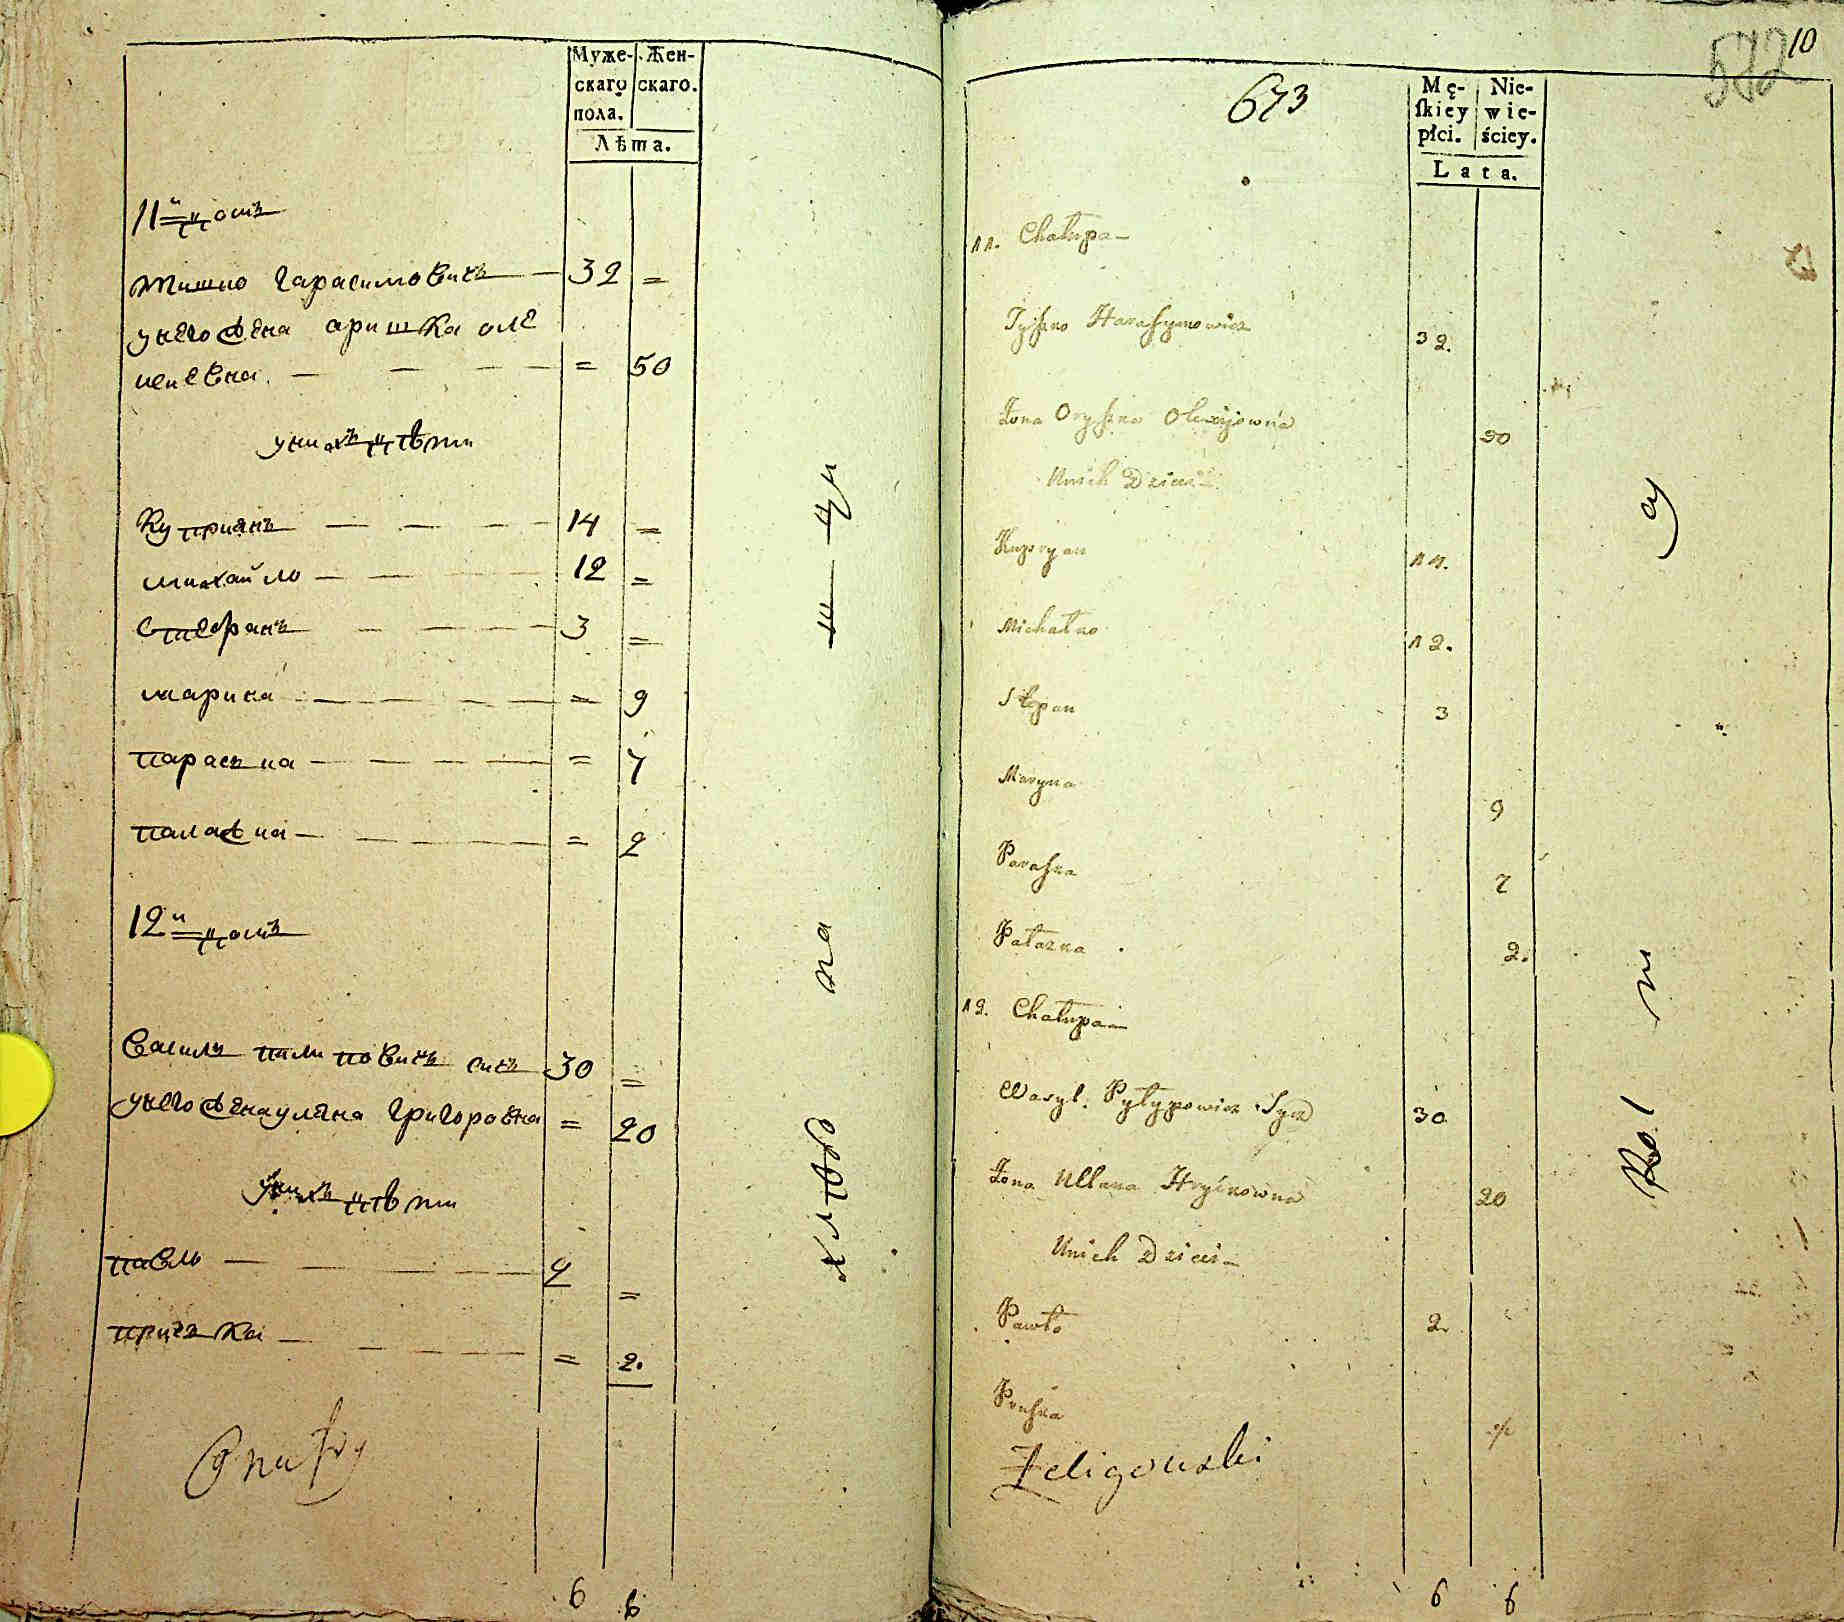 Муже-
скаго
пола.
Жен-
скаго.
Лѣта.
11й домъ
Тишко Гарасимовичъ — 32 =
у него жена Аришка Оле
ксиевна. — — — = 50
у нихъ дѣти
Куприянъ — — — 14 =
Михайло — — — 12 =
Стефанъ — — — 3 =
Марина — — — = 9
Параска — — — = 7
Палажка — — — = 2
12й домъ
Василь Пилиповичъ Сичъ 30 =
у него жена Уляна Григоровна = 20
у нихъ дѣти
Павло — — — =
Приська — — — = 2.
6 6
хлѣбо па ш ци
10
572
673
Mę-
ſkiey
płci.
Nie-
wie-
ściey.
Lata.
11. Chałupa —
Tyszko Harasymowicz 32.
Żona Oryszka Olexijowna 50
Unich Dzieci —
Kupryan 14.
Michałko 12.
Stepan 3
Maryna 9
Paraska 7
Pałazka 2.
12. Chałupa —
Wasyl Pyłypowicz Sycz 30
Żona Ullana Hryhorowna 20
Unich Dzieci —
Pawło 2.
Pruska
Żeligowski
6 6
Rol ni cy